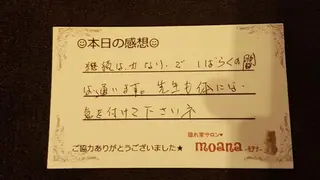 ☺本日の感想☺
継続は力なり。で しばらくの間
は通います。先生も体には
気を付けて下さいネ
ご協力ありがとうございました★
隠れ家サロン♥
moana
モアナ